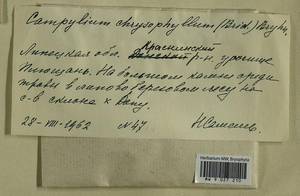 Campylium chrysophyllum (Brid.) Bryhn.
Липецкая обл. Краснинский р-н, урочище
Плющань. На большом камне среди
травы в липово-березовом лесу на
с-в склоне к
28-VIII-1962 № 47
Herbarium MW, Bryophyta